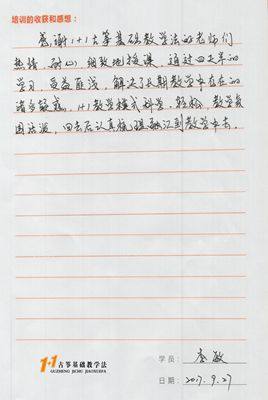 培训的收获和感想：
感谢1+1古筝基础教学法的老师们
热情、耐心、细致地授课，通过四天半的
学习，受益匪浅，解决了长期教学中存在的
诸多疑惑，1+1教学模式科学、轻松，教学氛
围活泼，回去后认真梳理融汇到教学中去。
1+1 古筝基础教学法
GUZHENG JICHU JIAOXUEFA
学员：李敏
日期：2017.9.27